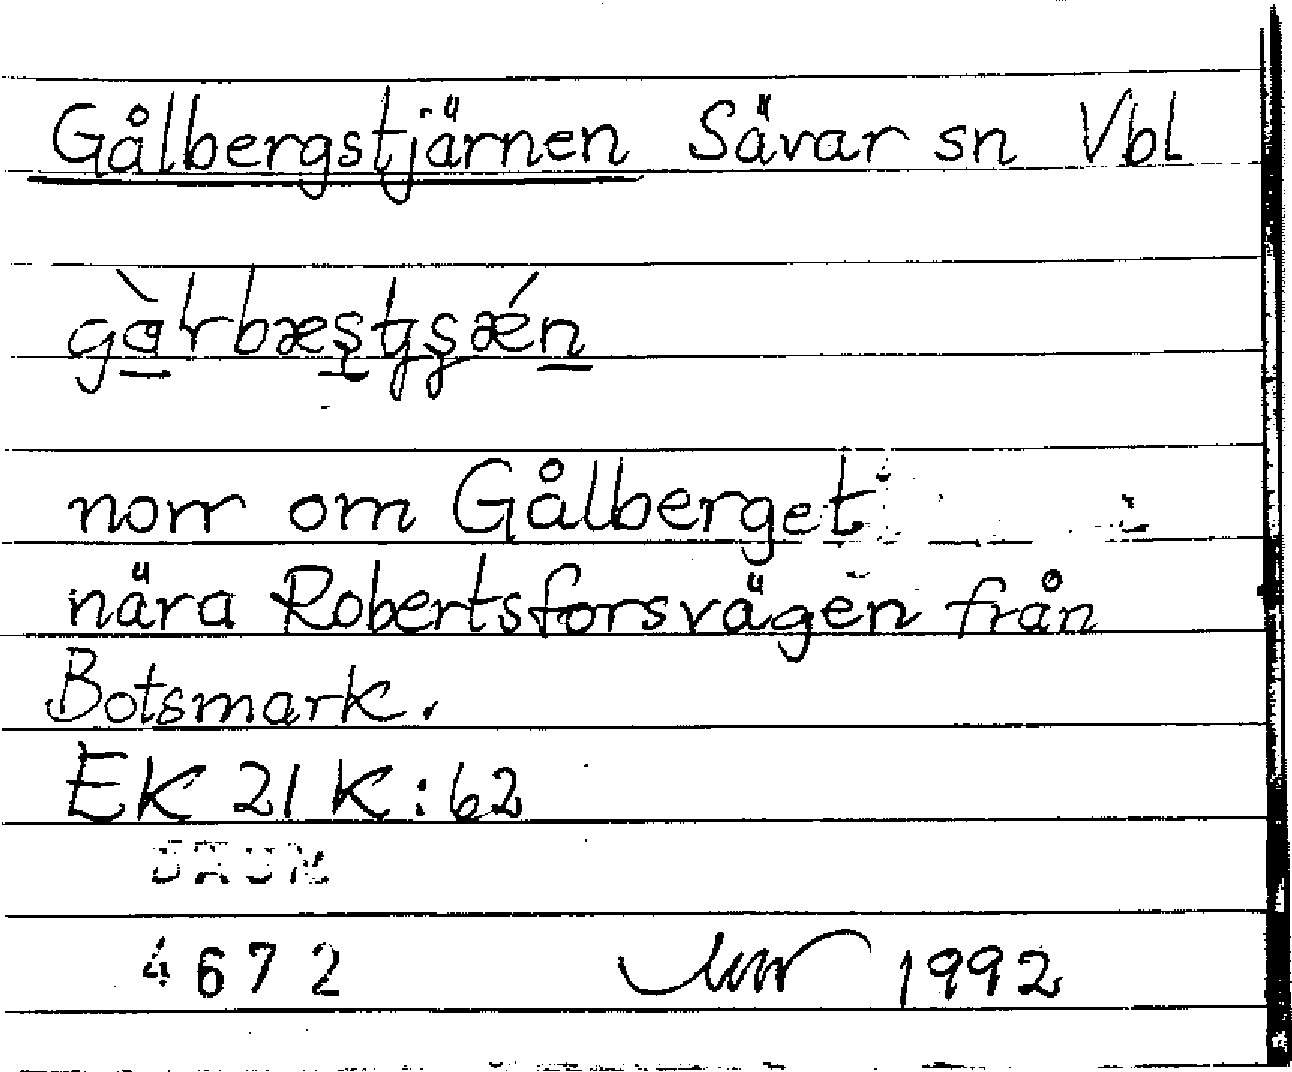 Gålbergstjärnen Sävar sn Vbl
norr om Gålberget
nära Robertsforsvägen från
Botsmark.
EK 21 K:62
DAUM
4672 1992